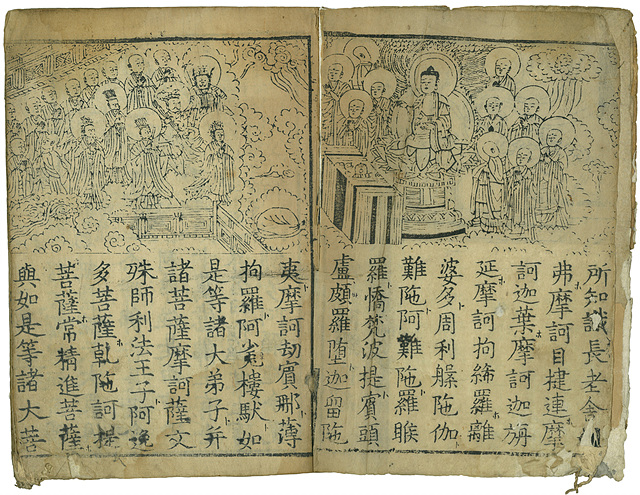 所知識長老舍
弗摩訶目揵連摩
訶迦葉摩訶迦旃
延摩訶拘絺羅離
婆多周利槃陁伽
難陁阿難陁羅睺
羅憍梵波提賓頭
盧頗羅墮迦留陁
夷摩訶劫賓那薄
拘羅阿㝹樓馱如
是等諸大弟子并
諸菩薩摩訶薩文
殊師利法王子阿逸
多菩薩乾陁訶提
菩薩常精進菩薩
與如是等諸大菩